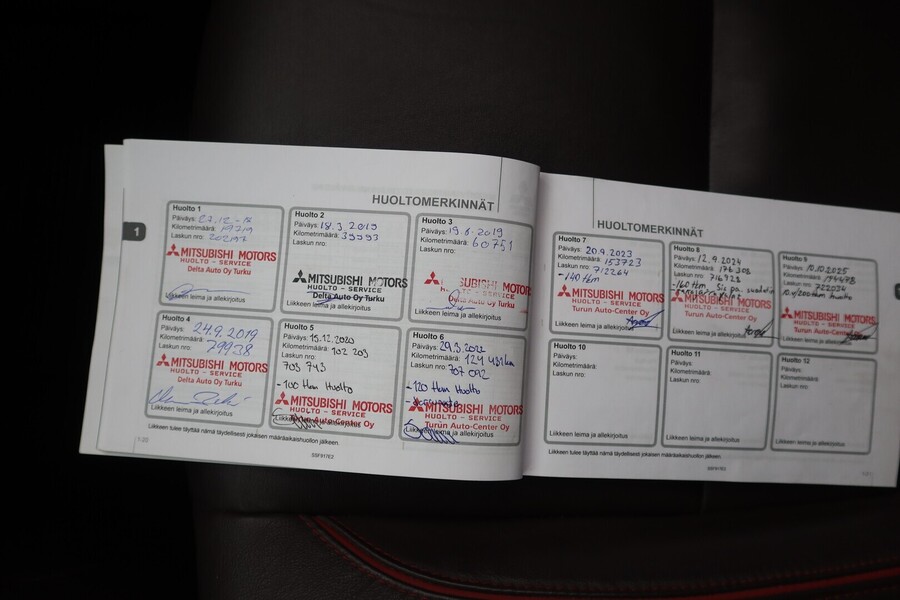 HUOLTOMERKINNÄT
1
Huolto 1
Päiväys: 27.12-17
Kilometrimäärä: 19719
Laskun nro:
MITSUBISHI MOTORS
HUOLTO - SERVICE
Delta Auto Oy Turku
Liikkeen leima ja allekirjoitus
Huolto 2
Päiväys: 18.3.2019
Kilometrimäärä: 39593
Laskun nro:
MITSUBISHI MOTORS
HUOLTO - SERVICE
Delta Auto Oy Turku
Liikkeen leima ja allekirjoitus
Huolto 3
Päiväys: 19.6.2019
Kilometrimäärä: 60751
Laskun nro:
MITSUBISHI MOTORS
HUOLTO - SERVICE
Delta Auto Oy Turku
Liikkeen leima ja allekirjoitus
Huolto 4
Päiväys: 24.9.2019
Kilometrimäärä: 79938
Laskun nro:
MITSUBISHI MOTORS
HUOLTO - SERVICE
Delta Auto Oy Turku
Liikkeen leima ja allekirjoitus
Huolto 5
Päiväys: 15.12.2020
Kilometrimäärä: 102 209
Laskun nro:
703 743
-100 tkm Huolto
MITSUBISHI MOTORS
HUOLTO - SERVICE
Turun Auto-Center Oy
Huolto 6
Päiväys: 29.3.2022
Kilometrimäärä: 124 431km
Laskun nro: 707 092
-120 tkm Huolto
MITSUBISHI MOTORS
HUOLTO - SERVICE
Turun Auto-Center Oy
Liikkeen leima ja allekirjoitus
Liikkeen tulee täyttää nämä täydellisesti jokaisen määräaikaishuollon jälkeen.
1-20
SSF917E2
HUOLTOMERKINNÄT
Huolto 7
Päiväys: 20.9.2023
Kilometrimäärä: 153723
Laskun nro: 712264
-140 tkm
MITSUBISHI MOTORS
HUOLTO - SERVICE
Turun Auto-Center Oy
Liikkeen leima ja allekirjoitus
Huolto 8
Päiväys: 12.9.2024
Kilometrimäärä: 176 308
Laskun nro: 716723
-160 tkm
MITSUBISHI MOTORS
HUOLTO - SERVICE
Turun Auto-Center Oy
Liikkeen leima ja allekirjoitus
Huolto 9
Päiväys: 10.10.2025
Kilometrimäärä: 194478
Laskun nro: 722034
10.v/200tkm huolto
MITSUBISHI MOTORS
HUOLTO - SERVICE
Turun Auto-Center Oy
Liikkeen leima ja allekirjoitus
Huolto 10
Päiväys:
Kilometrimäärä:
Laskun nro:
Liikkeen leima ja allekirjoitus
Huolto 11
Päiväys:
Kilometrimäärä:
Laskun nro:
Liikkeen leima ja allekirjoitus
Huolto 12
Päiväys:
Kilometrimäärä:
Laskun nro:
Liikkeen leima ja allekirjoitus
Liikkeen tulee täyttää nämä täydellisesti jokaisen määräaikaishuollon jälkeen.